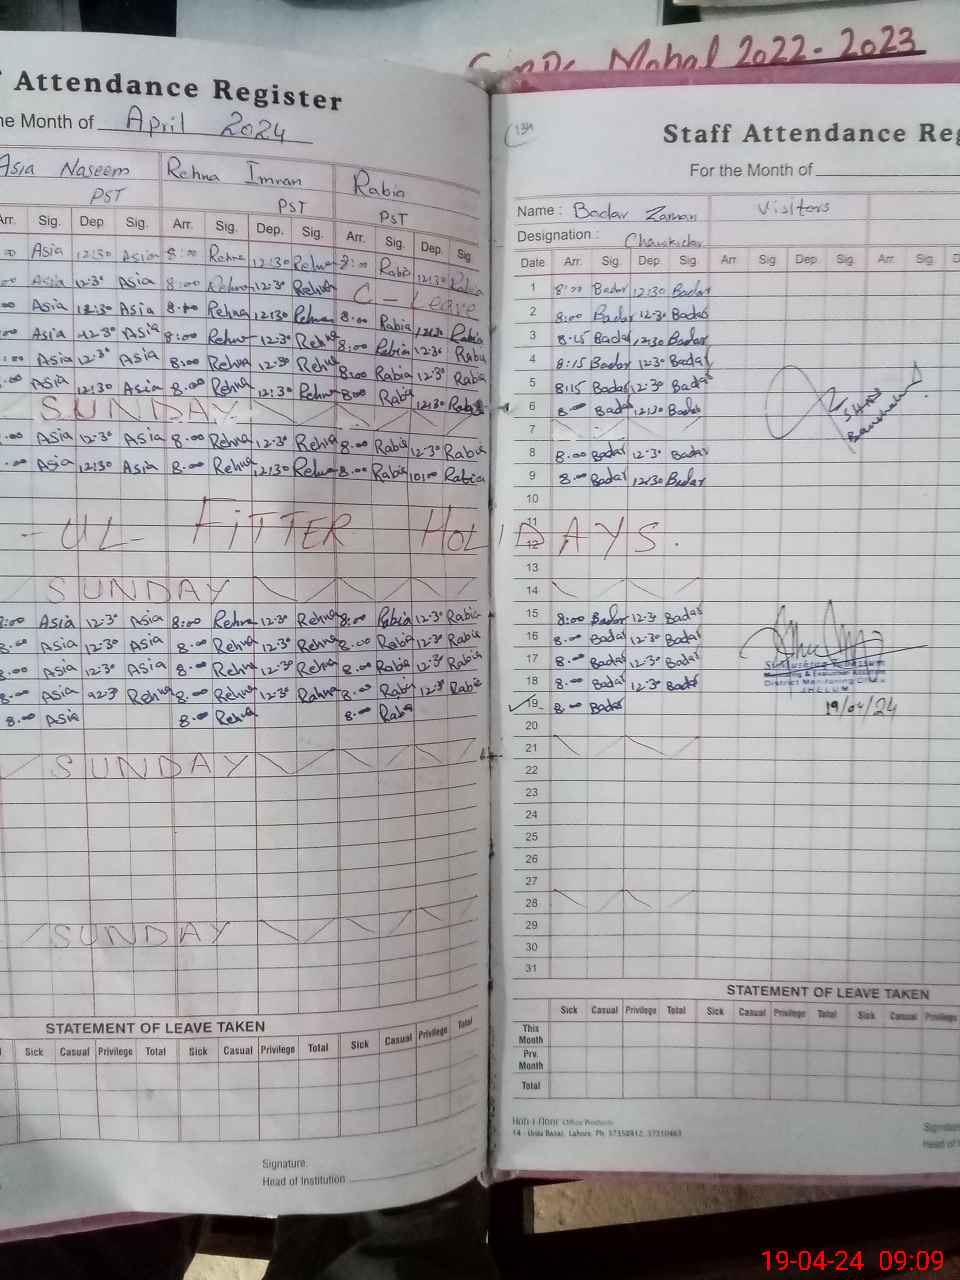 Mohal 2022-2023
Attendance Register
the Month of April 2024
Asia Naseem Rehna Imran Rabia
PST PST PST
Arr. Sig. Dep Sig. Arr. Sig. Dep. Sig. Arr. Sig. Dep. Sig.
:00 Asia 12:30 Asia 8:00 Rehna 12:30 Rehna 8:00 Rabia 12:30 Rabia
00 Asia 12-30 Asia 8:00 Rehna 12-30 Rehna C - Leave
00 Asia 12:30 Asia 8.00 Rehna 12:30 Rehna 8.00 Rabia 12:30 Rabia
:00 Asia 12-30 Asia 8:00 Rehna 12-30 Rehna 8:00 Rabia 12-30 Rabia
:00 Asia 12-30 Asia 8:00 Rehna 12-30 Rehna 8:00 Rabia 12-30 Rabia
.00 Asia 12:30 Asia 8.00 Rehna 12:30 Rehna 8:00 Rabia 12:30 Rabia
SUNDAY
.00 Asia 12-30 Asia 8.00 Rehna 12-30 Rehna 8.00 Rabia 12-30 Rabia
.00 Asia 12:30 Asia 8.00 Rehna 12:30 Rehna 8.00 Rabia 10:00 Rabia
- UL - FiTTER HOLIDAYS.
SUNDAY
8:00 Asia 12-30 Asia 8:00 Rehna 12-30 Rehna 8:00 Rabia 12-30 Rabia
8.00 Asia 12-30 Asia 8.00 Rehna 12-30 Rehna 8.00 Rabia 12-30 Rabia
8.00 Asia 12-30 Asia 8.00 Rehna 12-30 Rehna 8.00 Rabia 12-30 Rabia
8.00 Asia 12-30 Rehna 8.00 Rehna 12-30 Rehna 8.00 Rabia 12-30 Rabia
8.00 Asia 8.00 Rehna 8.00 Rabia
SUNDAY
SUNDAY
STATEMENT OF LEAVE TAKEN
Sick Casual Privilege Total Sick Casual Privilege Total Sick Casual Privilege Total
Signature.
Head of Institution
134
Staff Attendance Reg
For the Month of
Name : Badar Zaman Visitors
Designation : Chawkidar
Date Arr. Sig. Dep. Sig. Arr. Sig. Dep. Sig. Arr. Sig. D
1 8:00 Badar 12:30 Badar
2 8:00 Badar 12-30 Badar
3 8.15 Badar 12:30 Badar
4 8:15 Badar 12-30 Badar
5 8:15 Badar 12-30 Badar
6 8.00 Badar 12:30 Badar
7
8 8.00 Badar 12-30 Badar
9 8.00 Badar 12:30 Badar
10
11
12
13
14
15 8:00 Badar 12-30 Badar
16 8.00 Badar 12-30 Badar
17 8.00 Badar 12-30 Badar
18 8.00 Badar 12-30 Badar
19 8.00 Badar
Monitoring & Evaluation Assistant
District Monitoring Office
JHELUM
19/04/24
20
21
22
23
24
25
26
27
28
29
30
31
STATEMENT OF LEAVE TAKEN
Sick Casual Privilege Total Sick Casual Privilege Total Sick Casual Privilege
This Month
Prv. Month
Total
Office Products
14 - Urdu Bazar, Lahore. Ph:
Signature
Head of
19-04-24 09:09